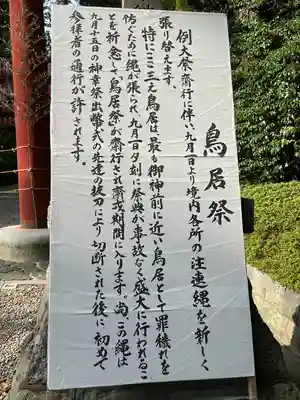 鳥居祭
例大祭斎行に伴い九月一日より境内各所の注連縄を新しく
張り替えます。
特にここ三之鳥居は、最も御神前に近い鳥居として罪穢れを
防ぐために縄が張られ、九月一日夕刻に祭典が事故なく盛大に行われるこ
とを祈念して鳥居祭が斎行され斎戒期間に入ります。尚、この縄は
九月十五日の神幸祭出幣式の先達の抜刀により切断された後に、初めて
参拝者の通行が許されます。